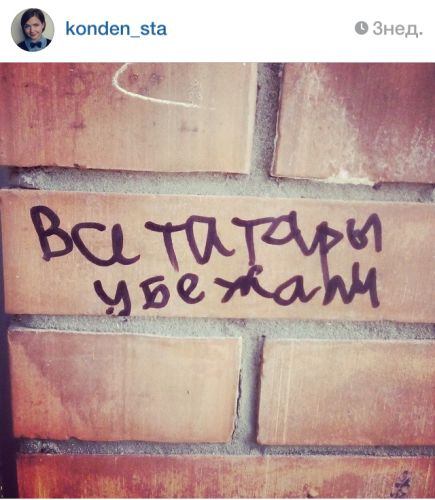 konden_sta
3нед.
Все татары
убежали